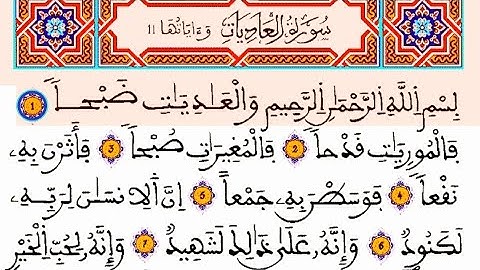 سورة العاديات وءاياتها 11
بِسْمِ اِ۬للَّهِ اِ۬لرَّحْمَٰنِ اِ۬لرَّحِيمِ وَالْعَٰدِيَٰتِ ضَبْحاٗ 1
فَالْمُورِيَٰتِ قَدْحاٗ 2 فَالْمُغِيرَٰتِ صُبْحاٗ 3 فَأَثَرْنَ بِهِۦ
نَقْعاٗ 4 فَوَسَطْنَ بِهِۦ جَمْعاً 5 اِنَّ اَ۬لِانسَٰنَ لِرَبِّهِۦ
لَكَنُودٞ 6 وَإِنَّهُۥ عَلَىٰ ذَٰلِكَ لَشَهِيدٞ 7 وَإِنَّهُۥ لِحُبِّ اِ۬لْخَيْرِ